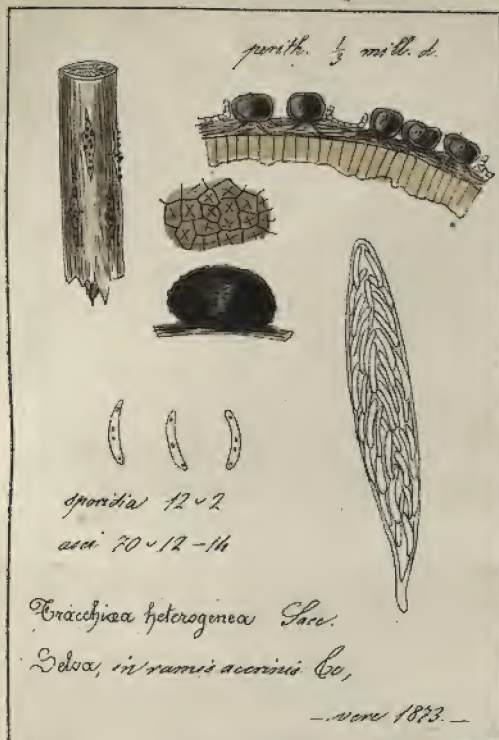 perith. ⅓ mill. d.
sporidia 12 v 2
asci 70 v 12 - 14
heterogenea Sacc.
Selva, in ramis acerinis
_ vere 1873._